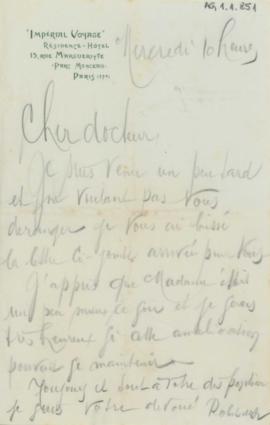 AG, 1-1. 251
"IMPERIAL VOYAGE"
RÉSIDENCE-HOTEL
15, RUE MARGUERITTE
(PARC MONCEAU)
PARIS
Mercredi 10 heures
Cher docteur,
Je suis venu un peu tard
et ne voulant pas vous
deranger je vous ai laissé
la lettre ci-jointe arrivée pour vous
J'appris que Madame était
un peu mieux ce soir et je serais
très heureux si cette amelioration
pouvait se maintenir.
Toujours et
je suis votre devoué